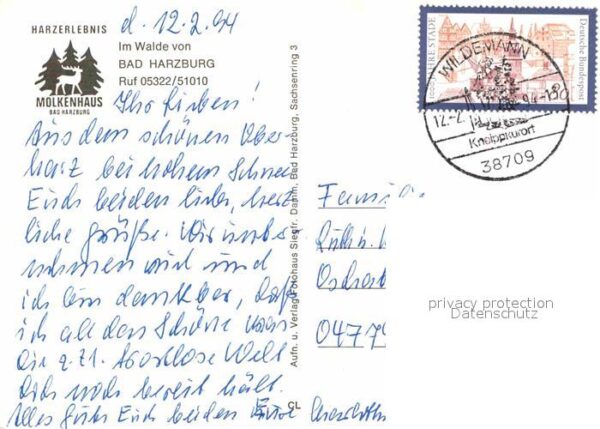 d. 12.2.94
HARZERLEBNIS
MOLKENHAUS
BAD HARZBURG
Im Walde von
BAD HARZBURG
Ruf 05322/51010
Ihr Lieben!
Aus dem schönen Ober-
harz bei hohem Schnee
Euch beiden liebe, herz-
liche Grüße. Wir
und
ich bin dankbar, daß
ich all das Schöne
Die z. Zt. Welt
noch bereit hält.
Alles Gute Euch beiden Eure
Aufn. u. Verlag Fotohaus Siegfr. Damm, Bad Harzburg, Sachsenring 3
CL
JAHRE STADE
Deutsche Bundespost
WILDEMANN
12.-2. 94-
Kneippkurort
38709
Familie
0477
privacy protection
Datenschutz